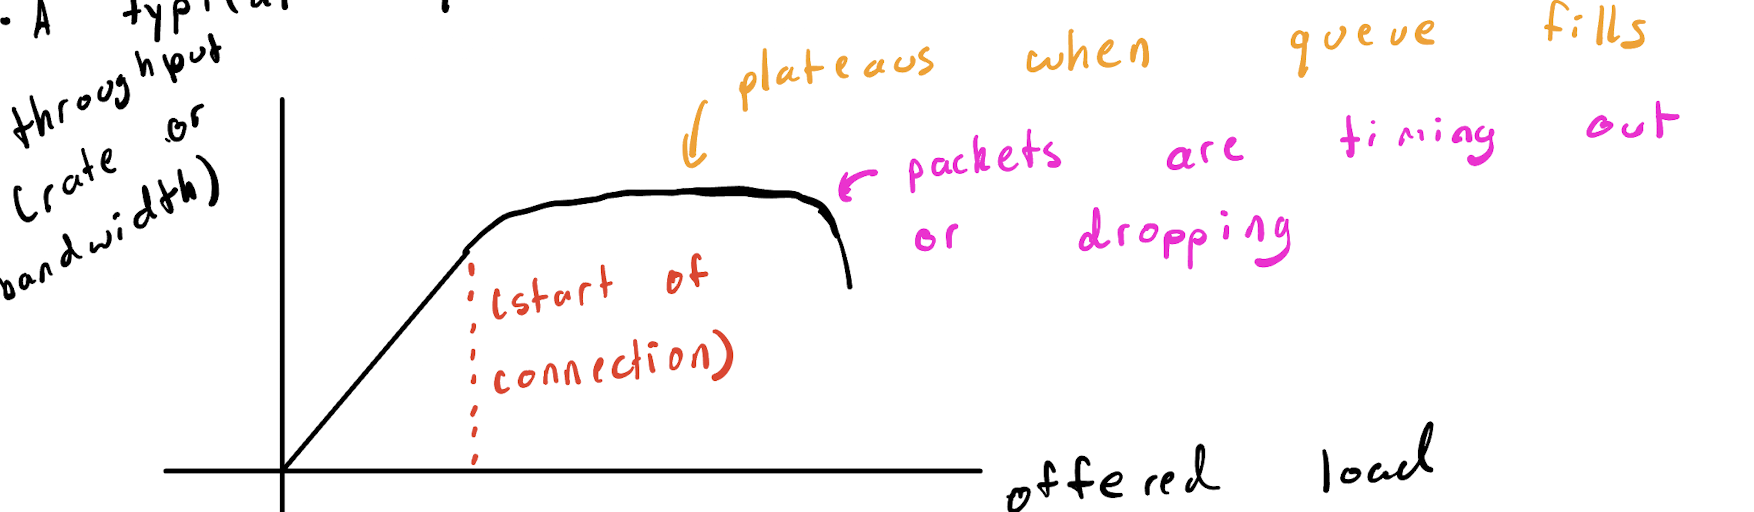 · A typical
throughput
(rate or
bandwidth)
plateaus when queue fills
packets are timing out
or dropping
(start of
connection)
offered load